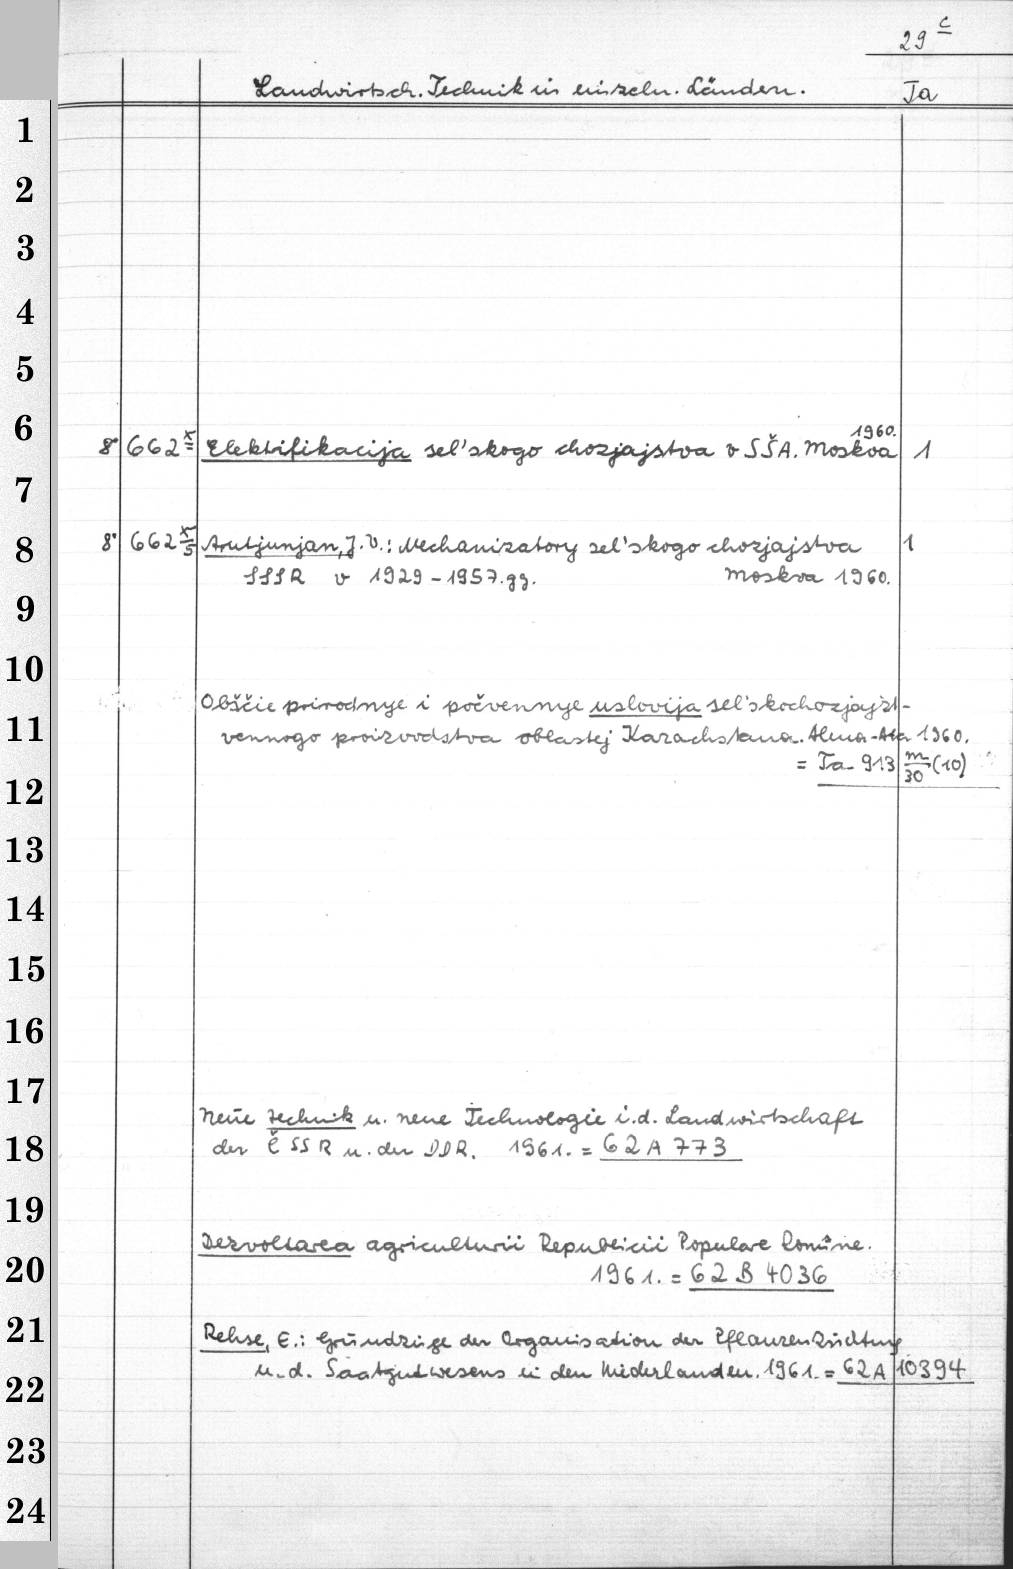 29 c
Landwirtsch. Technik in einzeln. Ländern.
Ta
1
2
3
4
5
6
1960.
8° 662 x Elektrifikacija sel'skogo chozjajstva v SŠA. Moskva 1
7
8
8° 662 x/5 Arutjunjan, J. V.: Mechanizatory sel'skogo chozjajstva 1
SSSR v 1929-1957.gg. Moskva 1960.
9
10
Obščie prirodnye i počvennye uslovija sel'skochozjajst-
11
vennogo proizvodstva oblastej Kazachstana. Alma-Ata 1960.
= Ta 913 m/30 (10)
12
13
14
15
16
17
Neue Technik u. neue Technologie i. d. Landwirtschaft
18
der ČSSR u. der DDR. 1961. = 62 A 773
19
Dezvoltarea agriculturii Republicii Populare Romîne.
20
1961. = 62 B 4036
21
Rehse, E.: Grundzüge der Organisation der Pflanzenzüchtung
u. d. Saatgutwesens in den Niederlanden. 1961. = 62 A 10394
22
23
24